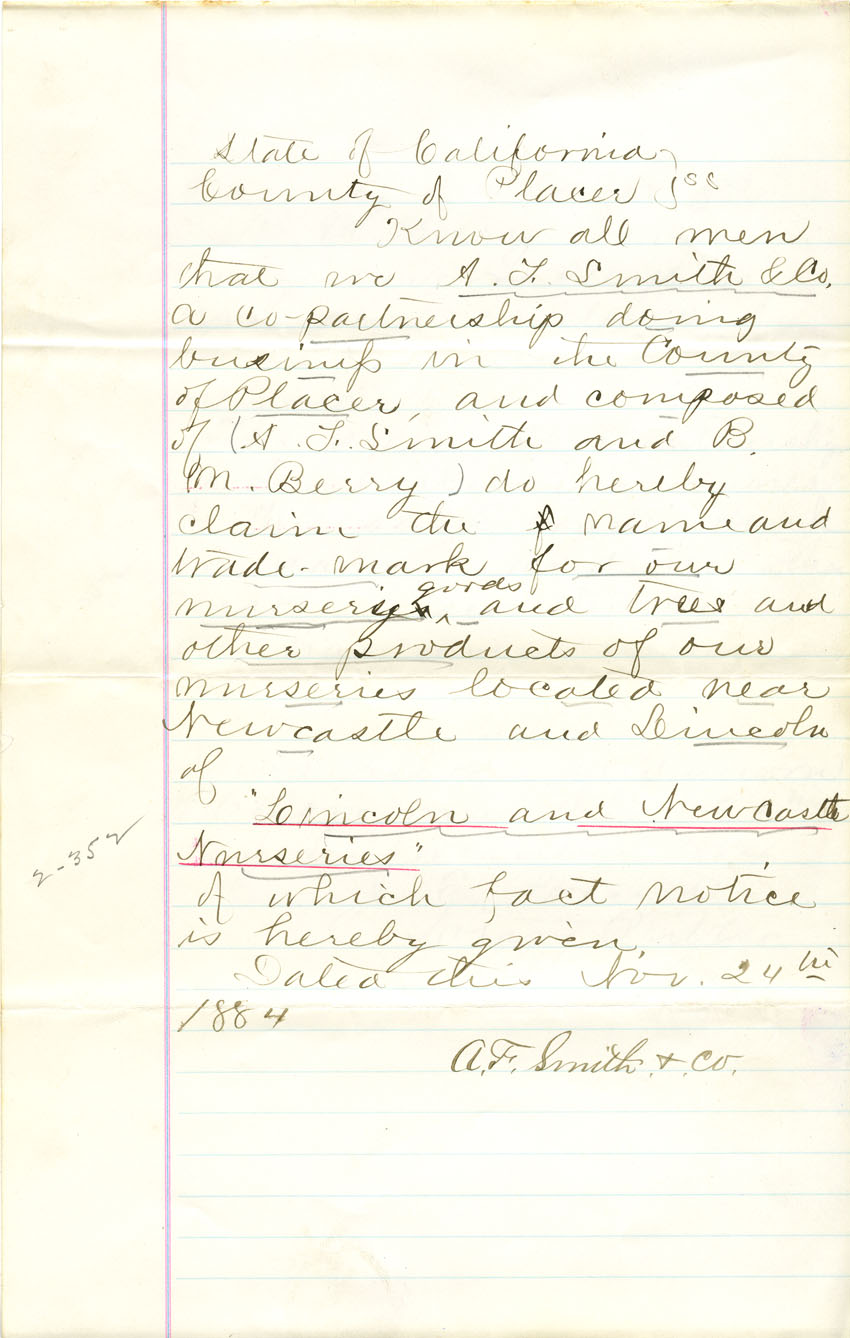 State of California }
County of Placer } ss
Know all men
that we A. F. Smith & Co.
a co-partnership doing
business in the County
of Placer, and composed
of (A. F. Smith and B.
M. Berry) do hereby
claim the name and
trade-mark for our
nursery goods and trees and
other products of our
nurseries located near
Newcastle and Lincoln
of
"Lincoln and Newcastle
Nurseries"
of which fact notice
is hereby given.
Dated this Nov. 24th
1884
A. F. Smith & Co.
2-352